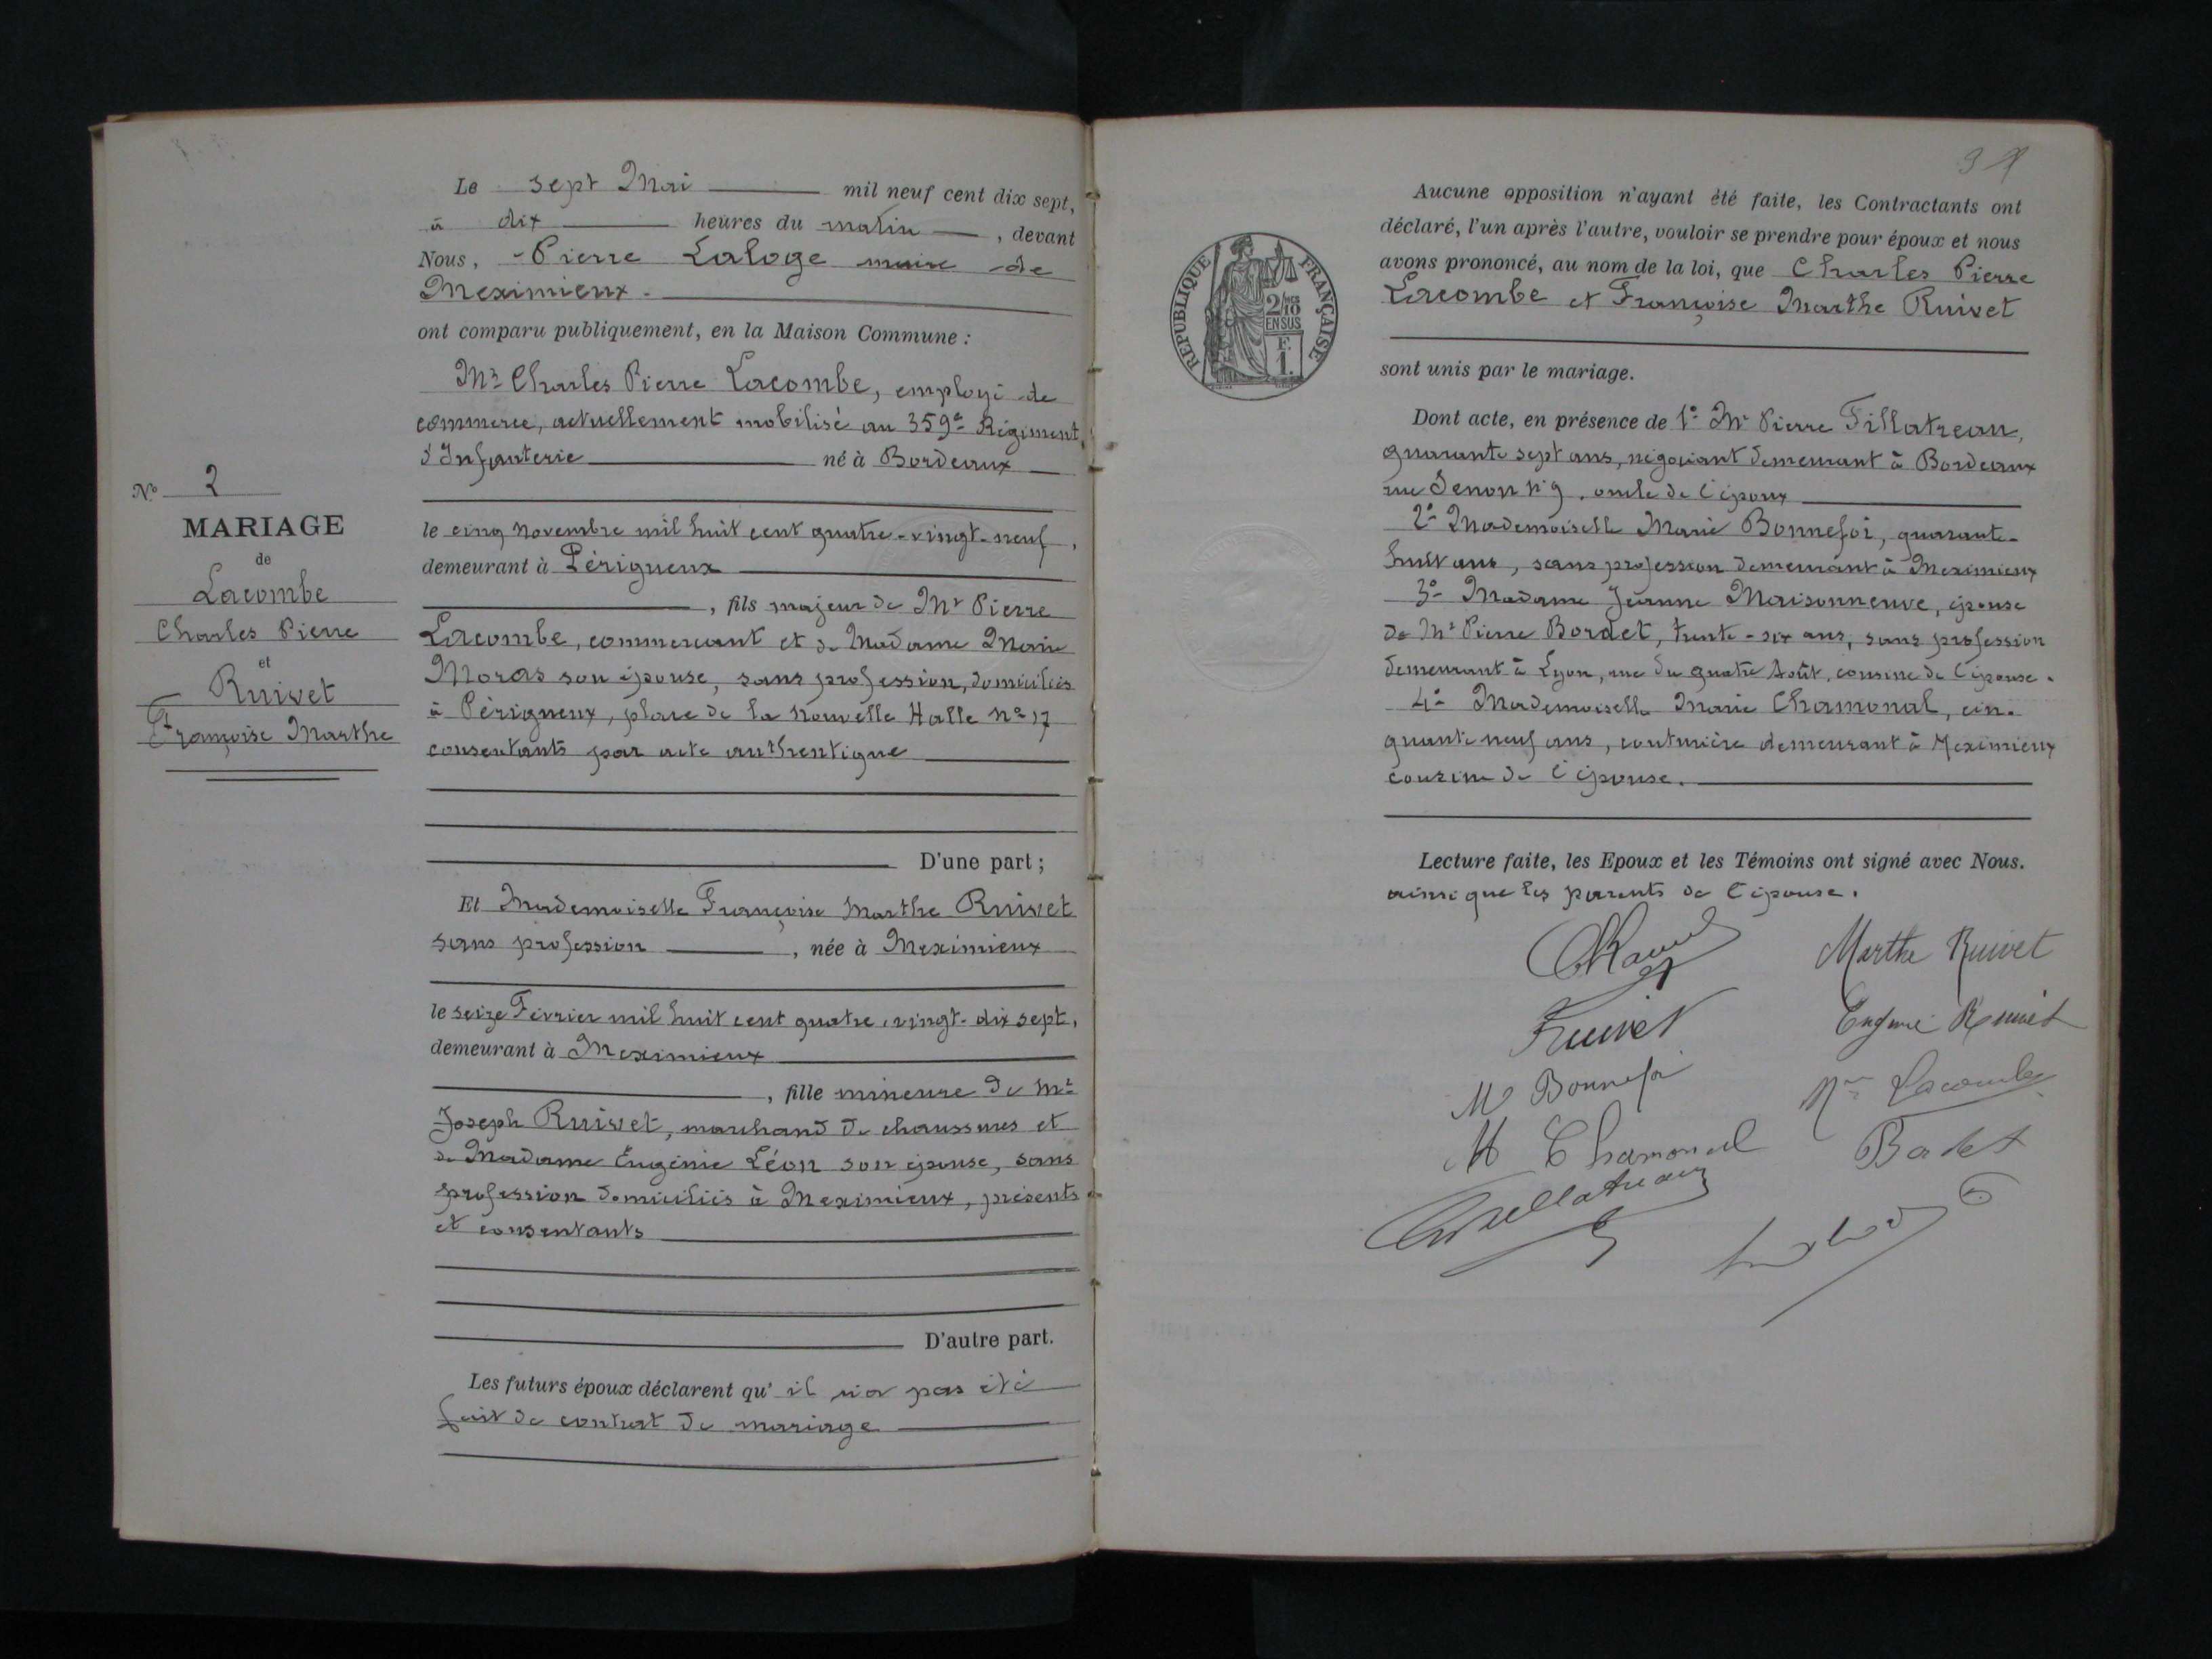 Nº 2
MARIAGE
de
Lacombe
Charles Pierre
et
Ruivet
Françoise Marthe
Le sept Mai mil neuf cent dix sept,
à dix heures du matin, devant
Nous, Pierre Laloge maire de
Meximieux.
ont comparu publiquement, en la Maison Commune :
Mr Charles Pierre Lacombe, employé de
commerce, actuellement mobilisé au 359e Régiment
d'Infanterie né à Bordeaux
le cinq novembre mil huit cent quatre-vingt-neuf,
demeurant à Périgueux
, fils majeur de Mr Pierre
Lacombe, commercant et de Madame Marie
Moras son épouse, sans profession, domiciliés
à Périgueux, place de la nouvelle Halle no 17
consentants par acte authentique
D'une part ;
Et Mademoiselle Françoise Marthe Ruivet
sans profession, née à Meximieux
le seize Février mil huit cent quatre-vingt-dix sept,
demeurant à Meximieux
, fille mineure de Mr
Joseph Ruivet, marchand de chaussures et
de Madame Eugénie Léon son épouse, sans
profession domiciliés à Meximieux, présents
et consentants
D'autre part.
Les futurs époux déclarent qu'il n'a pas été
fait de contrat de mariage
RÉPUBLIQUE FRANÇAISE
2/10
EN SUS
F.
1.
Aucune opposition n'ayant été faite, les Contractants ont
déclaré, l'un après l'autre, vouloir se prendre pour époux et nous
avons prononcé, au nom de la loi, que Charles Pierre
Lacombe et Françoise Marthe Ruivet
sont unis par le mariage.
Dont acte, en présence de 1° Mr Pierre Fillatreau,
quarante sept ans, négociant demeurant à Bordeaux
rue Senon no 9, oncle de l'époux
2° Mademoiselle Marie Bonnefoi, quarante-
huit ans, sans profession demeurant à Meximieux
3° Madame Jeanne Maisonneuve, épouse
de Mr Pierre Bordet, trente-six ans, sans profession
demeurant à Lyon, rue du quatre Août, cousine de l'épouse.
4° Mademoiselle Marie Chamonal, cin-
quante neuf ans, couturière demeurant à Meximieux
cousine de l'épouse.
Lecture faite, les Epoux et les Témoins ont signé avec Nous.
ainsi que les parents de l'épouse.
Marthe Ruivet
Ruivet
Eugénie Ruivet
M Bonnefoi
Lacombe
M Chamonal
Fillatreau